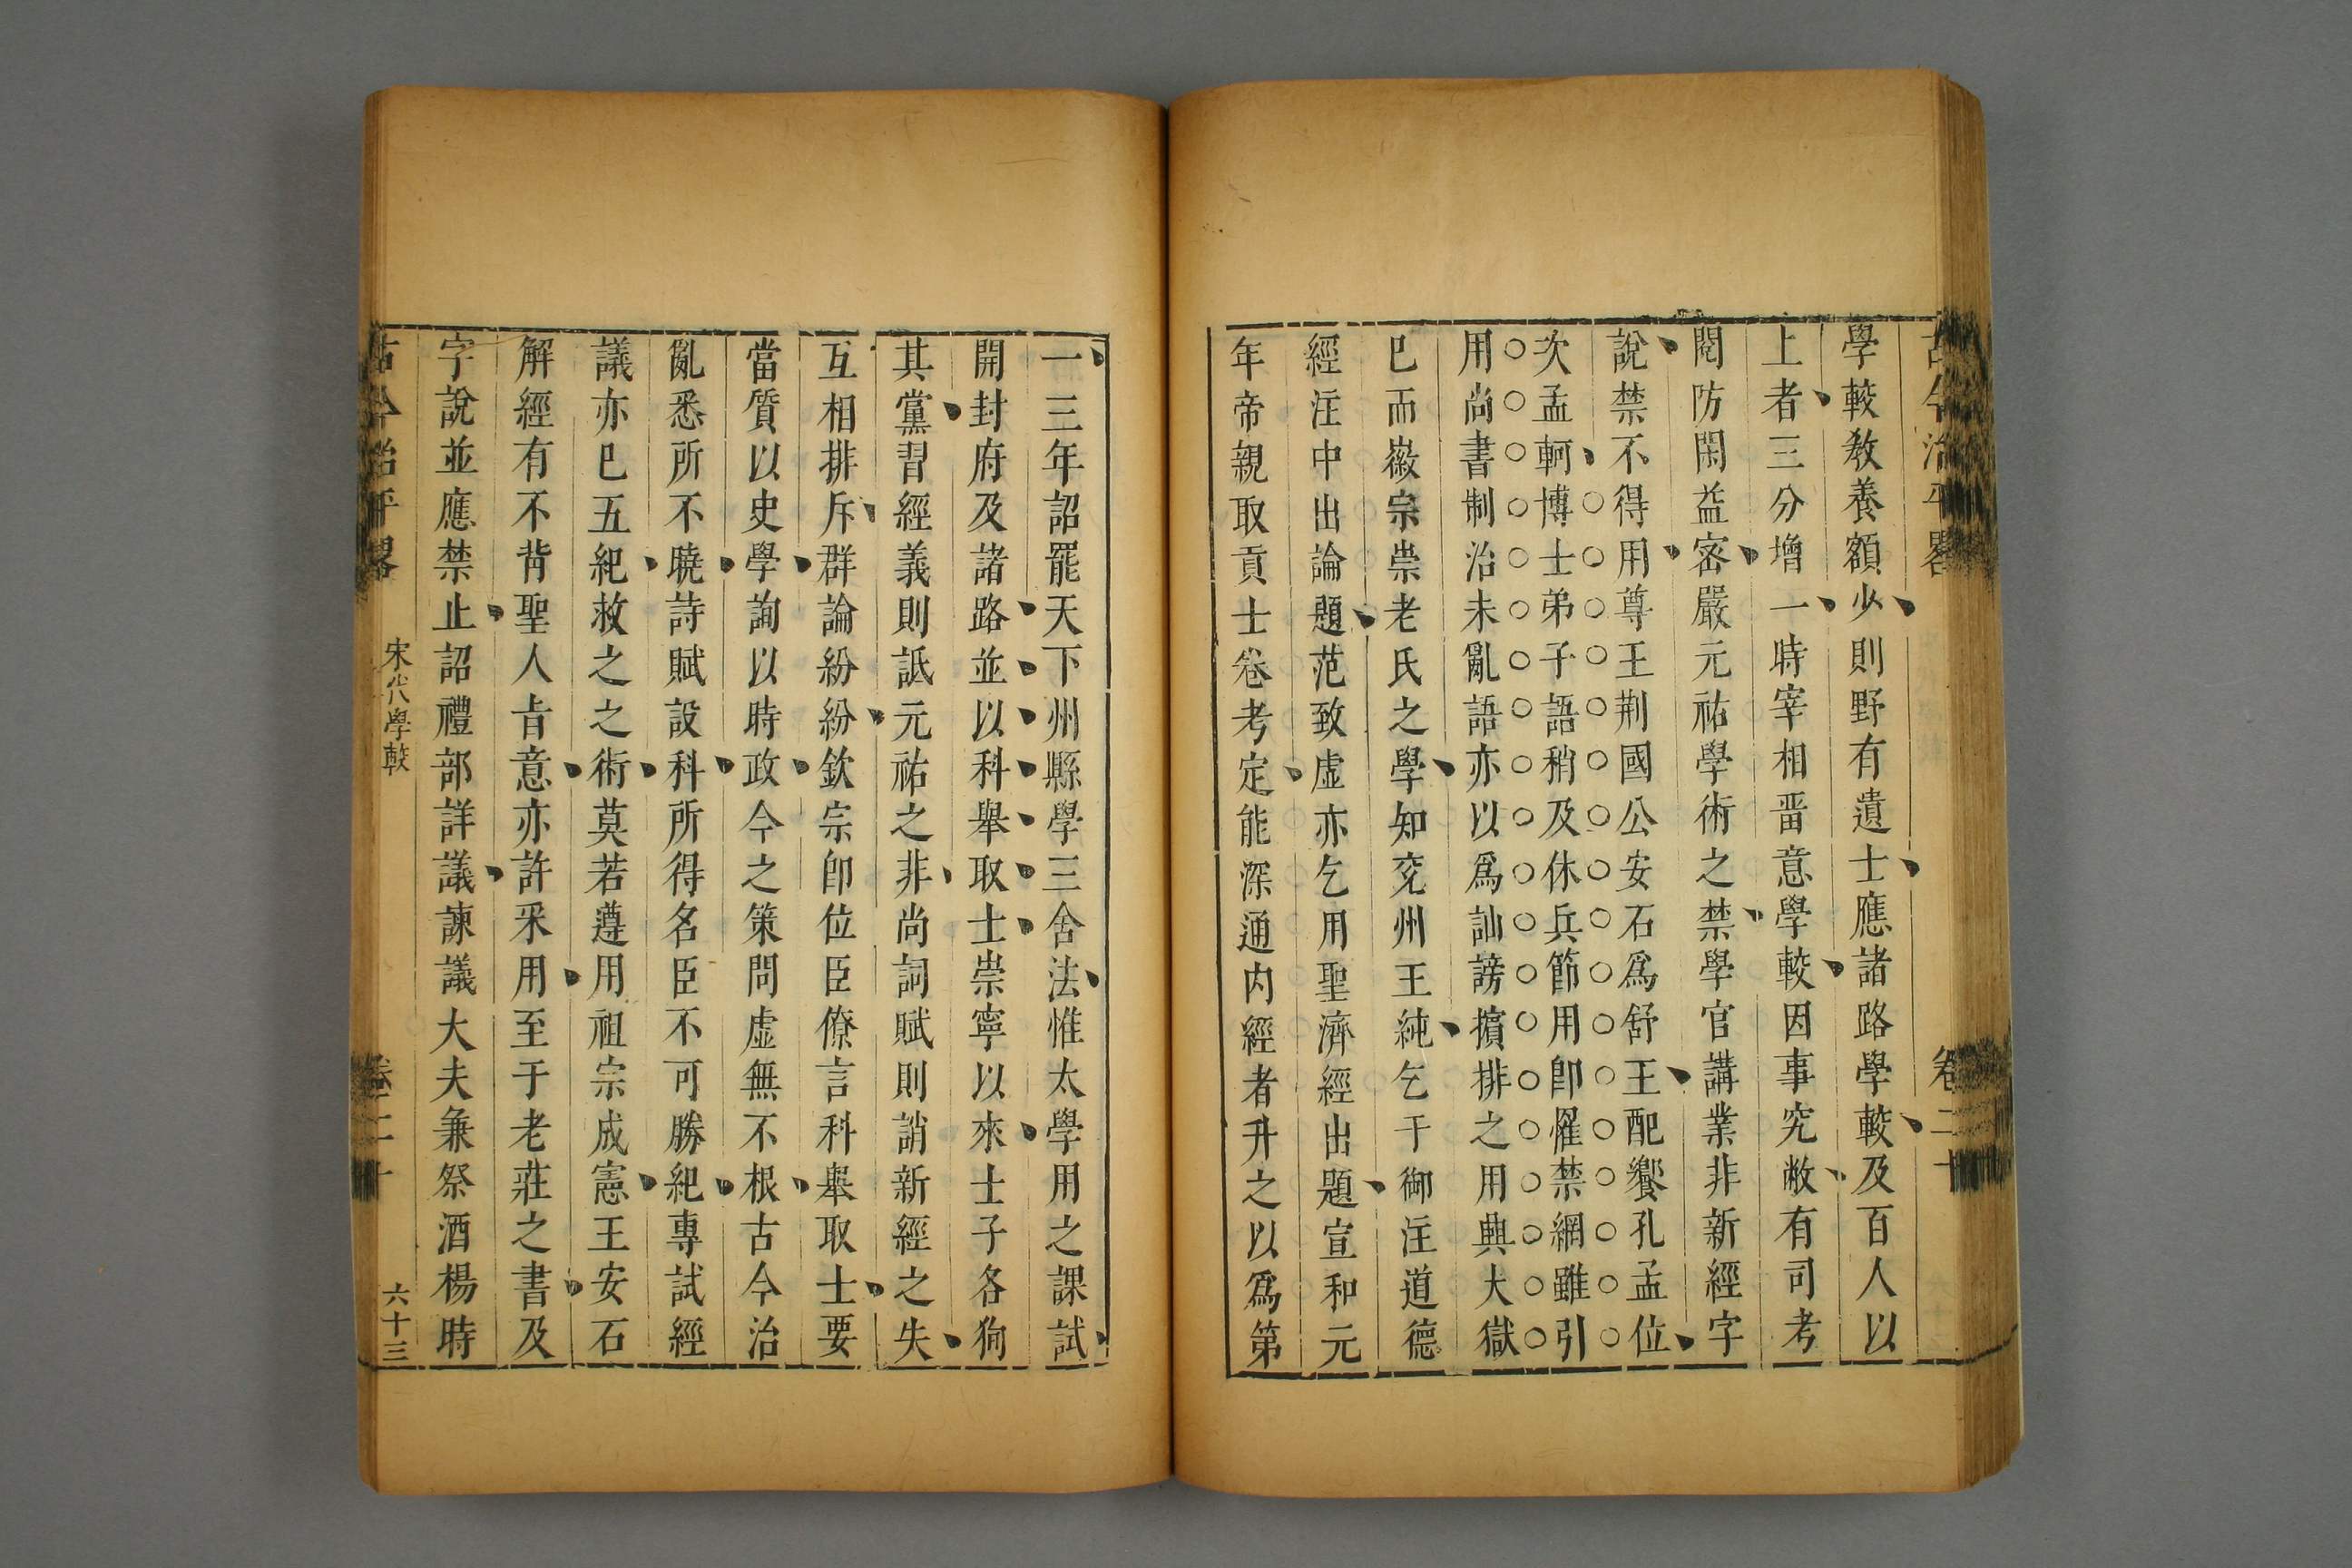 古今治平畧 卷二十
學較教養額少則野有遺士應諸路學較及百人以
上者三分增一時宰相畱意學較因事究敝有司考
閱防閑益宻嚴元祐學術之禁學官講業非新經字
說禁不得用尊王荆國公安石爲舒王配饗孔孟位
次孟軻博士弟子語稍及休兵節用卽罹禁網雖引
用尚書制治未亂語亦以爲訕謗擯排之用興大獄
已而徽宗崇老氏之學知兗州王純乞于御注道德
經注中出論題范致虛亦乞用聖濟經出題宣和元
年帝親取貢士卷考定能深通内經者升之以爲第
一三年詔罷天下州縣學三舍法惟太學用之課試
開封府及諸路並以科舉取士崇寧以來士子各狥
其黨習經義則詆元祐之非尚詞賦則誚新經之失
互相排斥群論紛紛欽宗卽位臣僚言科舉取士要
當質以史學詢以時政今之策問虛無不根古今治
亂悉所不曉詩賦設科所得名臣不可勝紀專試經
議亦已五紀救之之術莫若遵用祖宗成憲王安石
解經有不背聖人旨意亦許采用至于老莊之書及
字說並應禁止詔禮部詳議諫議大夫兼祭酒楊時
古今治平畧 宋代學較 卷二十 六十三